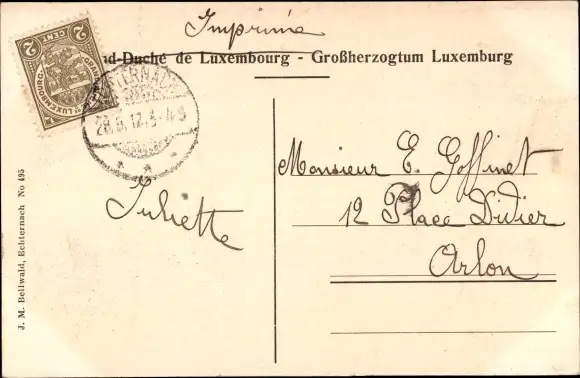 Imprimé
nd-Duché de Luxembourg - Großherzogtum Luxemburg
2 CENT. 2
GRAND
LUXEMBOURG
ECHTERNACH
28.5.12.3-4S
Monsieur E. Goffinet
12 Place Didier
Arlon
Juliette
J. M. Bellwald, Echternach No 495